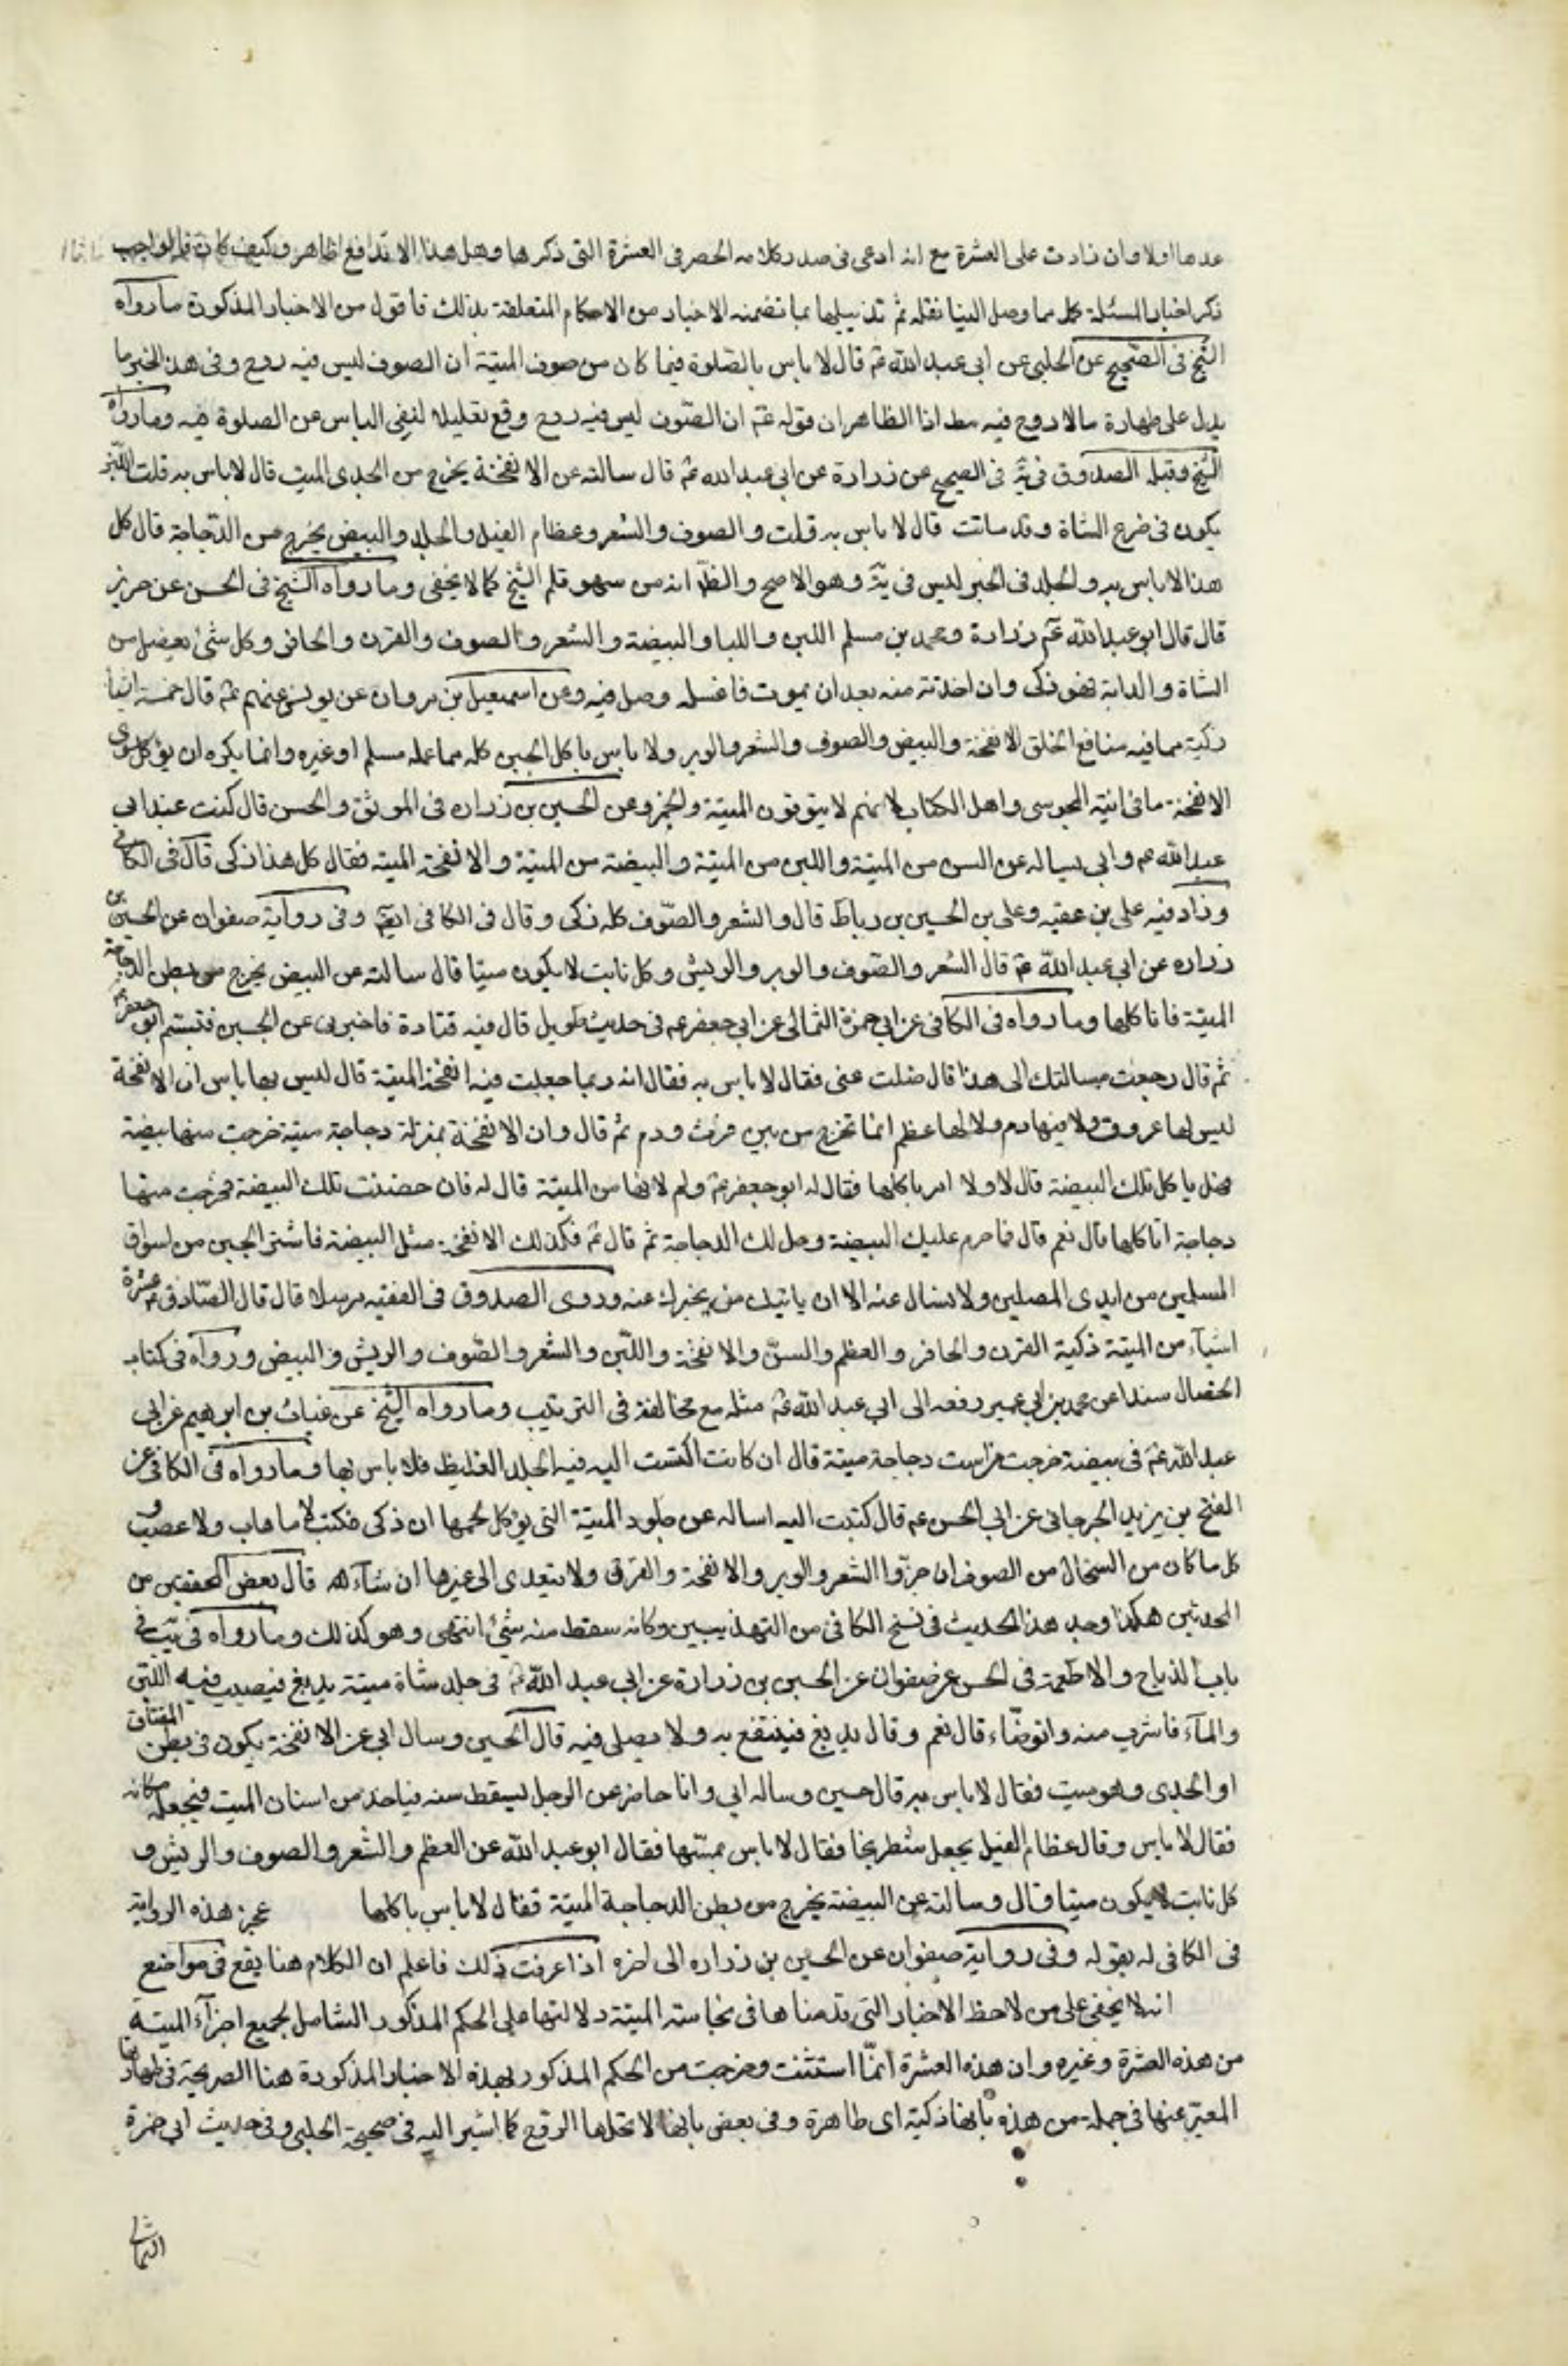 عدها اولا وان زادت على العشرة مع انه ادعى فى صدر كلامه الحصر فى العشرة التى ذكرها وهل هذا الا تدافع ظاهر وكيف كان فالواجب
ذكر اخبار المسئلة كملا مما وصل الينا نقله ثم تذييلها بما تضمنه الاخبار من الاحكام المتعلقة بذلك فاقول من الاخبار المذكورة ما رواه
الشيخ فى الصحيح عن الحلبى عن ابى عبد الله عم قال لا باس بالصلوة فيما كان من صوف الميتة ان الصوف ليس فيه روح وفى هذا الخبر ما
يدل على طهارة ما لا روح فيه مط اذ الظاهر ان قوله عم ان الصوف ليس فيه روح وقع تعليلا لنفى الباس عن الصلوة فيه وما رواه
الشيخ وقبله الصدوق فى يه فى الصحيح عن زرارة عن ابى عبد الله عم قال سالته عن الانفخة يخرج من الجدى الميت قال لا باس به قلت اللبن
يكون فى ضرع الشاة وقد ماتت قال لا باس به قلت والصوف والشعر وعظام الفيل والجلد والبيض يخرج من الدجاجة قال كل
هذا لا باس به والجلد فى الخبر ليس فى يه وهو الاصح والظ انه من سهو قلم الشيخ كما لا يخفى وما رواه الشيخ فى الحسن عن حريز
قال قال ابو عبد الله عم زرارة ومحمد بن مسلم اللبن واللبا والبيضة والشعر والصوف والقرن والحافر وكل شئ يفصل من
الشاة والدابة فهو ذكى وان اخذته منه بعد ان يموت فاغسله وصل فيه وعن اسمعيل بن مروان عن يونس عنهم عم قال خمسة اشيأ
ذكية مما فيه منافع الخلق الانفخة والبيض والصوف والشعر والوبر ولا باس باكل الجبن كله مما عمله مسلم او غيره وانما يكره ان يؤكل سوى
الانفخة ما فى انية المجوسى واهل الكتاب لانهم لا يتوقون الميتة والخمر وعن الحسين بن زراره فى الموثق والحسن قال كنت عند ابى
عبد الله عم وابى يساله عن السن من الميتة واللبن من الميتة والبيضة من الميتة والانفخة الميتة فقال كل هذا ذكى قال فى الكافى
وزاد فيه على بن عقبه وعلى بن الحسين بن رباط قال والشعر والصوف كله ذكى وقال فى الكافى ايض وفى رواية صفوان عن الحسين بن
زراره عن ابى عبد الله عم قال الشعر والصوف والوبر والريش وكل نابت لا يكون ميتا قال سالته عن البيض يخرج من بطن الدجاجة
الميتة فانا كلها وما رواه فى الكافى عن ابى حمزة الثمالى عن ابى جعفر عم فى حديث طويل قال فيه قتادة فاخبرنى عن الجبن فتبسم ابو جعفر عم
ثم قال رجعت مسالتك الى هذا قال ضلت عنى فقال لا باس به فقال انه ربما جعلت فيه انفخة الميتة قال ليس بها باس ان الانفخة
ليس لها عروق ولا فيها دم ولا لها عظم انما تخرج من بين فرث ودم ثم قال وان الانفخة بمنزلة دجاجة ميتة خرجت منها بيضة
فهل ياكل تلك البيضة قال لا ولا امر باكلها فقال له ابو جعفر عم ولم لانها من الميتة قال له فان حضنت تلك البيضة فخرجت منها
دجاجة اتاكلها قال نعم قال فما حرم عليك البيضة وحل لك الدجاجة ثم قال عم فكذلك الانفخة مثل البيضة فاشتر الجبن من اسواق
المسلمين من ايدى المصلين ولا تسال عنه الا ان ياتيك من يخبرك عنه وروى الصدوق فى الفقيه مرسلا قال قال الصادق عم عشرة
اشيآء من الميتة ذكية القرن والحافر والعظم والسن والانفخة واللبن والشعر والصوف والريش والبيض ورواه فى كتاب
الخصال سندا عن محمد بن ابى عمير رفعه الى ابى عبد الله عم مثله مع مخالفة فى الترتيب وما رواه الشيخ عن غياث بن ابرهيم عن ابى
عبد الله عم فى بيضة خرجت من است دجاجة ميتة قال ان كانت اكتست البيه فيه الجلد الغليظ فلا باس بها وما رواه فى الكافى عن
الفتح بن يزيد الجرجانى عن ابى الحسن عم قال كتبت اليه اساله عن جلود الميتة التى يؤكل لحمها ان ذكى فكتب لا ما هاب ولا عصب و
كل ما كان من السخال من الصوف ان جز والشعر والوبر والانفخة والقرن ولا يتعدى الى غيرها ان شآء الله قال بعض المحققين من
المحدثين هكذا وجد هذا الحديث فى نسخ الكافى من التهذيبين وكانه سقط منه شئ انتهى وهو كذلك وما رواه فى يب فى
باب الذباح والاطعمة فى الحسن عن صفوان عن الحسين بن زرارة عن ابى عبد الله عم فى جلد شاة ميتة يدبغ فيصيب فيه اللبن
والمآء فاشرب منه واتوضاء قال نعم وقال يدبغ فينتفع به ولا يصلى فيه قال الحسين وسال ابى عن الانفخة يكون فى بطن العناق
او الجدى وهو ميت فقال لا باس به قال حسين وساله ابى وانا حاضر عن الرجل يسقط سنه فياخذ من اسنان الميت فيجعله مكانه
فقال لا باس وقال عظام الفيل يجعل شطرنجا فقال لا باس بمسها فقال ابو عبد الله عن العظم والشعر والصوف والريش و
كل نابت لا يكون ميتا وقال وسالته عن البيضة يخرج من بطن الدجاجة الميتة فقال لا باس باكلها عجز هذه الرواية
فى الكافى له بقوله وفى رواية صفوان عن الحسين بن زراره الى اخره اذا عرفت ذلك فاعلم ان الكلام هنا يقع فى مواضع
انه لا يخفى على من لاحظ الاخبار التى قدمناها فى نجاسة الميتة دلالتها على الحكم المذكور الشامل لجميع اجزآء الميتة
من هذه العشرة وغيره وان هذه العشرة انما استثنت وخرجت من الحكم المذكور بهذه الاخبار المذكورة هنا الصريحة فى طهارتها
المعبر عنها فى جملة من هذه بانها ذكية اى طاهرة وفى بعض بانها لا تحلها الروح كما اشير اليه فى صحيحة الحلبى وفى حديث ابى حمزة
الثمالى